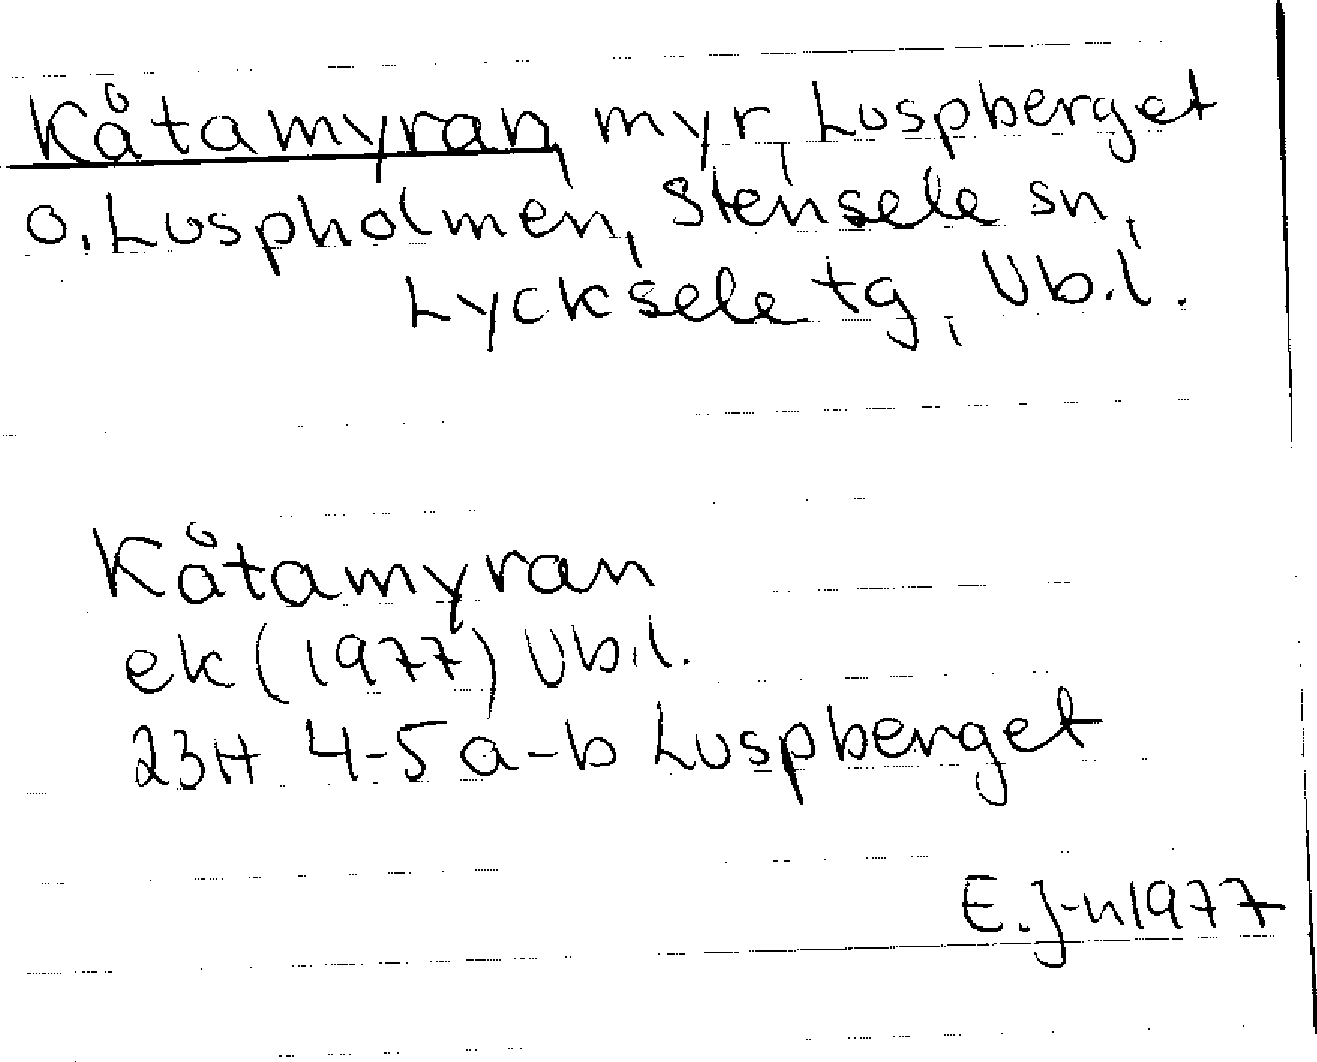 Kåtamyran, myr, Luspberget
o. Luspholmen, Stensele sn,
Lycksele tg, Vb.l.
Kåtamyran
ek (1977) Vb.l.
23H 4-5 a-b Luspberget
E.J-n 1977